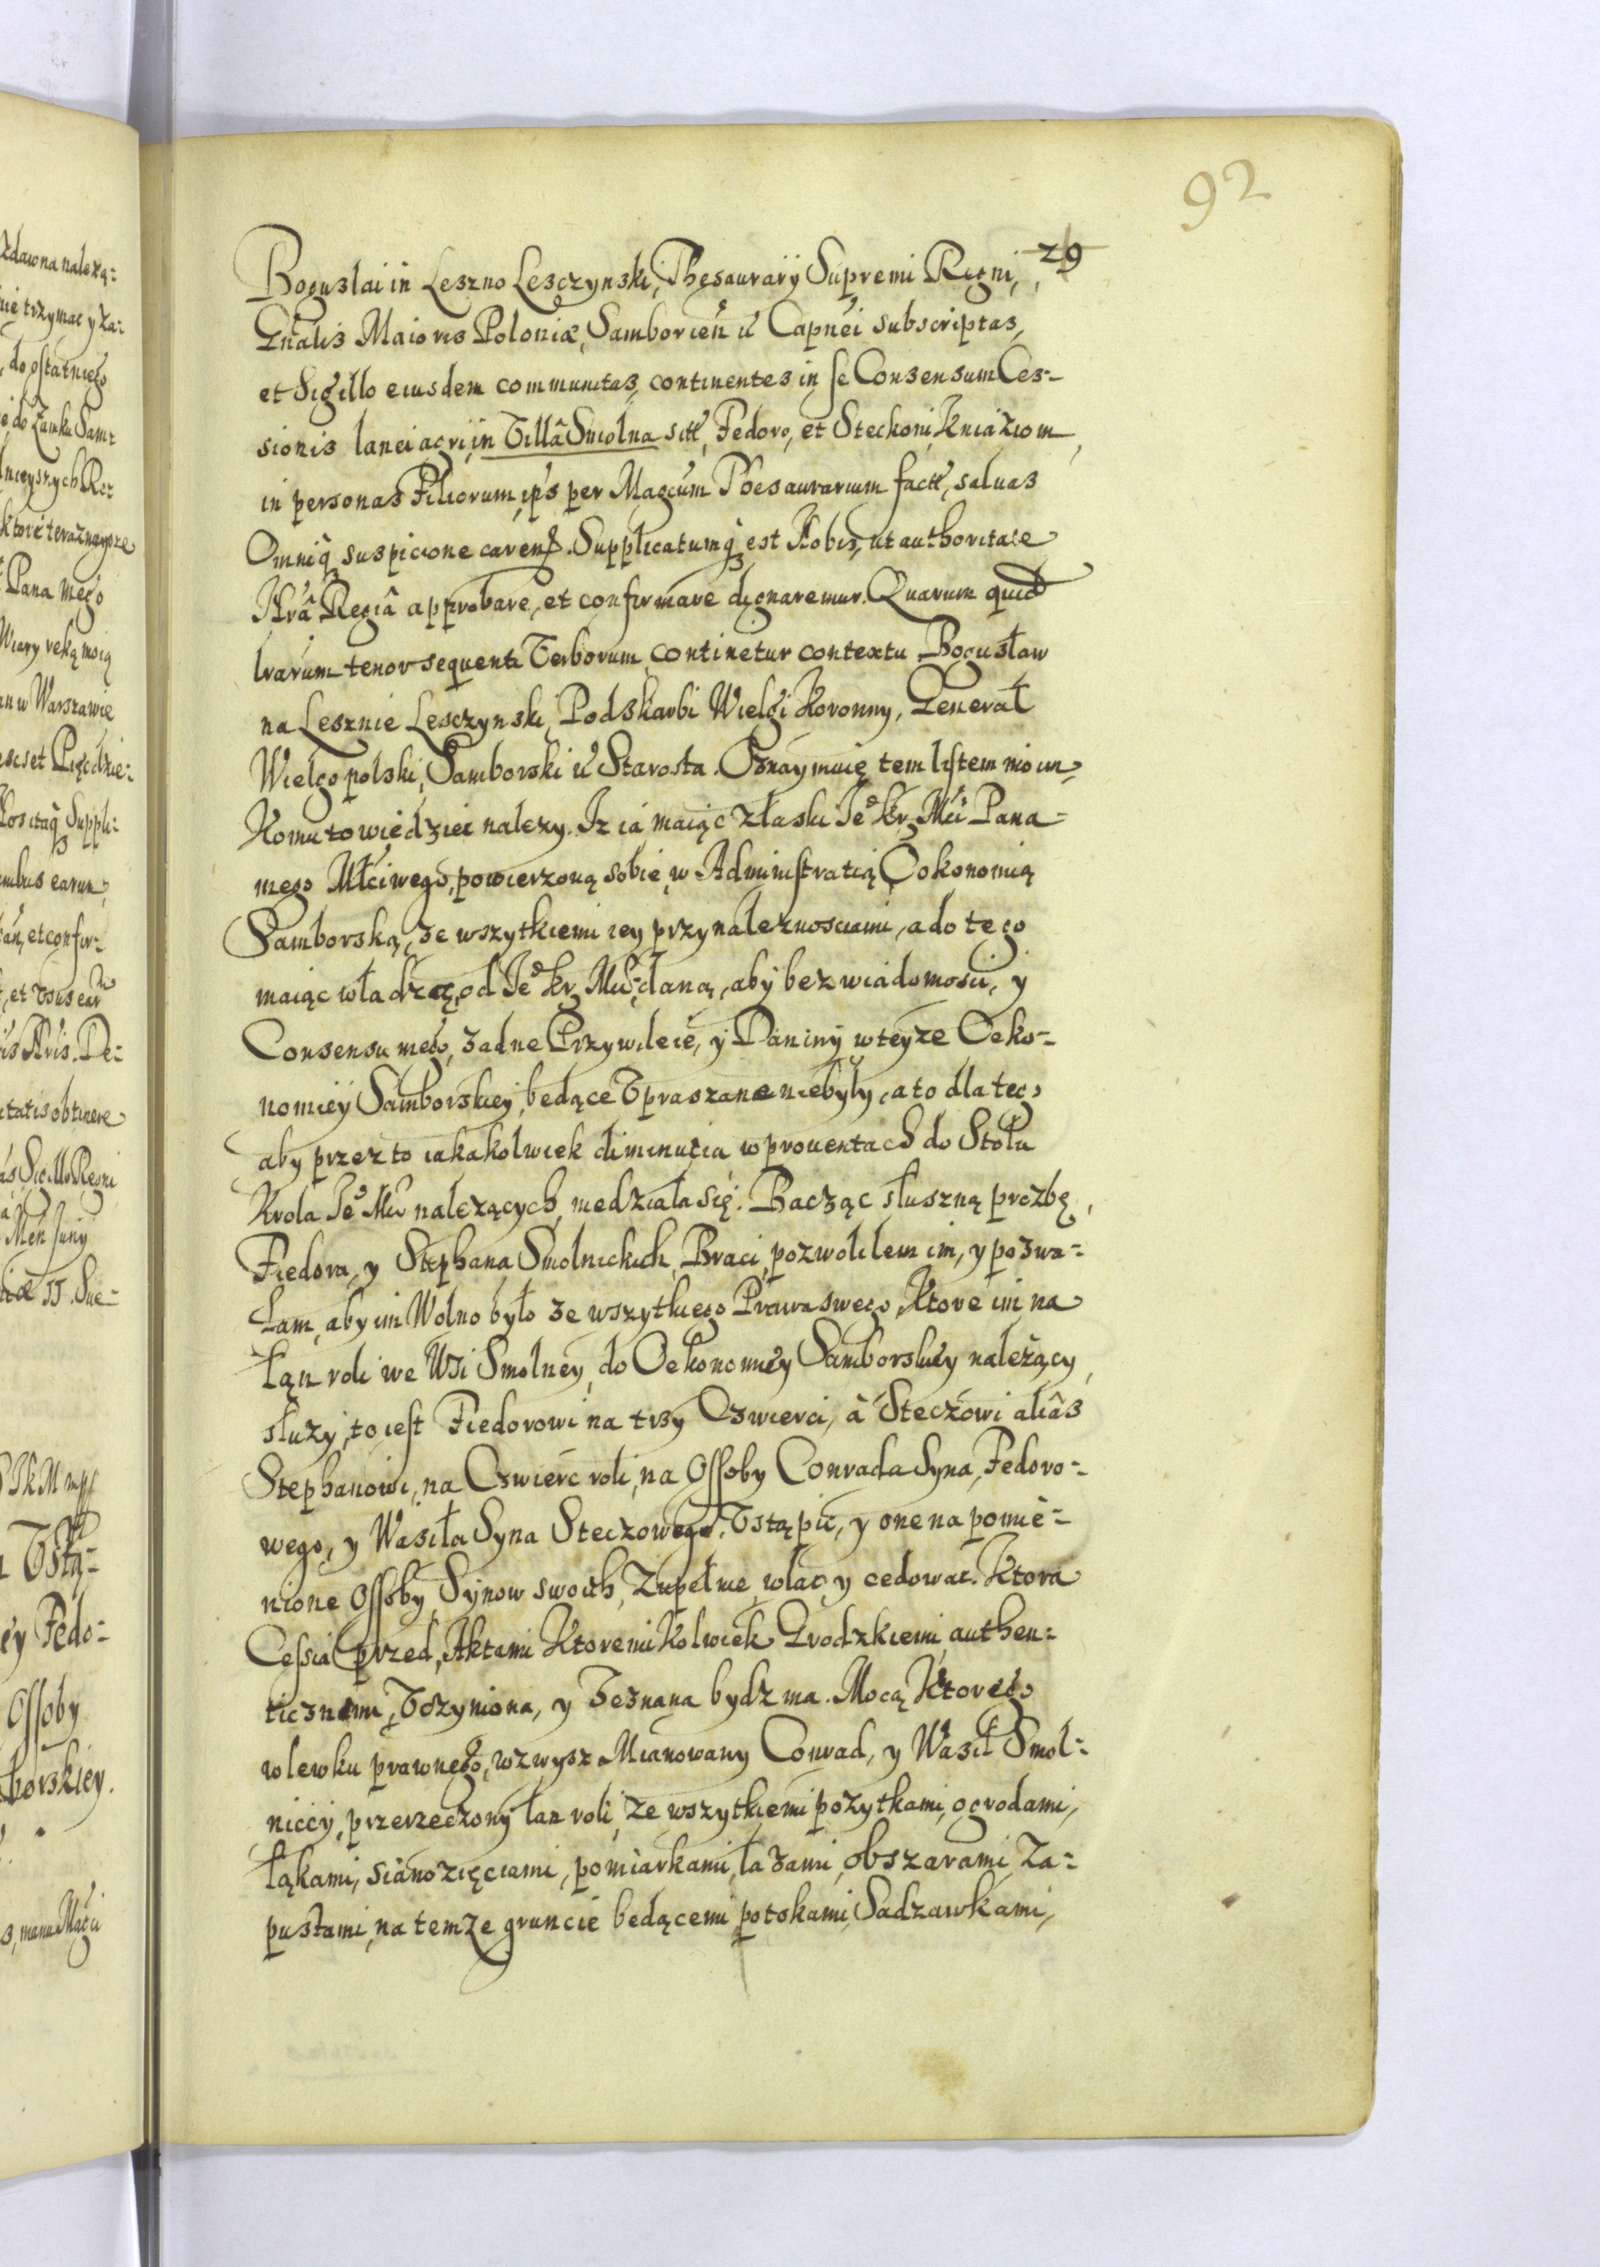 92
29
Boguslai in Leszno Lesczynski, Thesaurarij Supremi Regni,
Gnalis Maioris Poloniæ, Samborien ú Capnei subscriptas,
et Sigillo eiusdem communitas, continentes in se Consensum Ces-
sionis lanei agri, in Villâ Smolna sitæ, Fedoro, et Steckoni Kniaziom
in personas Filiorum, ips per Magcum Thesaurarium factæ, saluas
Omniq suspicione caren. Supplicatumq est Nobis, ut authoritate
Nrâ Regiâ approbare, et confirmare dignaremur. Quarum quid
lrarum tenor sequenti Verborum continetur contextu Bogusław
na Lesznie Lesczynski, Podskarbi Wielgi Koronny, Generał
Wielgopolski, Samborski ú Starosta. Oznaymuię tem listem moim,
Komu to wiedziec nalezy. Iz ia maiąc z łaski Ie° Kr Mci Pana-
mego Młciwego, powierzoną sobie w Administratią Oekonomią
Samborską, ze wszytkiemi iey przynaleznosciami, a do tego
maiąc władzą, od Ie° Kr Mci daną, aby bez wiadomosci, y
Consensu meg°, zadne Przywileie, y Daniny w teyze Oeko-
nomiey Samborskiey, bedące Vpraszane niebyły, a to dla teg°
aby przez to iakakolwiek diminucia w prouentach do Stołu
Krola Ie° Mci nalezących, niedziała się. Bacząc słuszną prozbę,
Fiedora, y Stephana Smolnickich, Braci, pozwoliłem im, y pozwa-
lam, aby im Wolno było ze wszytkiego Prawa swego, Ktore im na
Łąn roli we Wsi Smolney, do Oekonomiey Samborskiey nalezący,
słuzy, to iest Fiedorowi na trzy Czwierci, à Steczowi aliâs
Stephanowi, na Czwierc roli, na Ossoby Conrada Syna, Fedoro-
wego, y Wasiła Syna Steczowego, Vstąpic, y one na pomie-
nione Ossoby Synow swoich, Zupełnie wlac, y cedowac. Ktora
Cessia przed, Aktami Ktoremi Kolwiek Grodzkiemi authen-
ticznemi, Vczyniona, y Zeznana bydz ma. Mocą Ktoreg°
wlewku prawneg°, wzwysz Mianowany Conrad, y Wasił Smol-
niccy, przerzeczony łan roli, ze wszytkiemi pozytkami, ogrodami,
łąkami, sianozięciami, pomiarkami, łazami, obszarami, Za-
pustami, na temze gruncie bedącemi potokami, Sadzawkami,